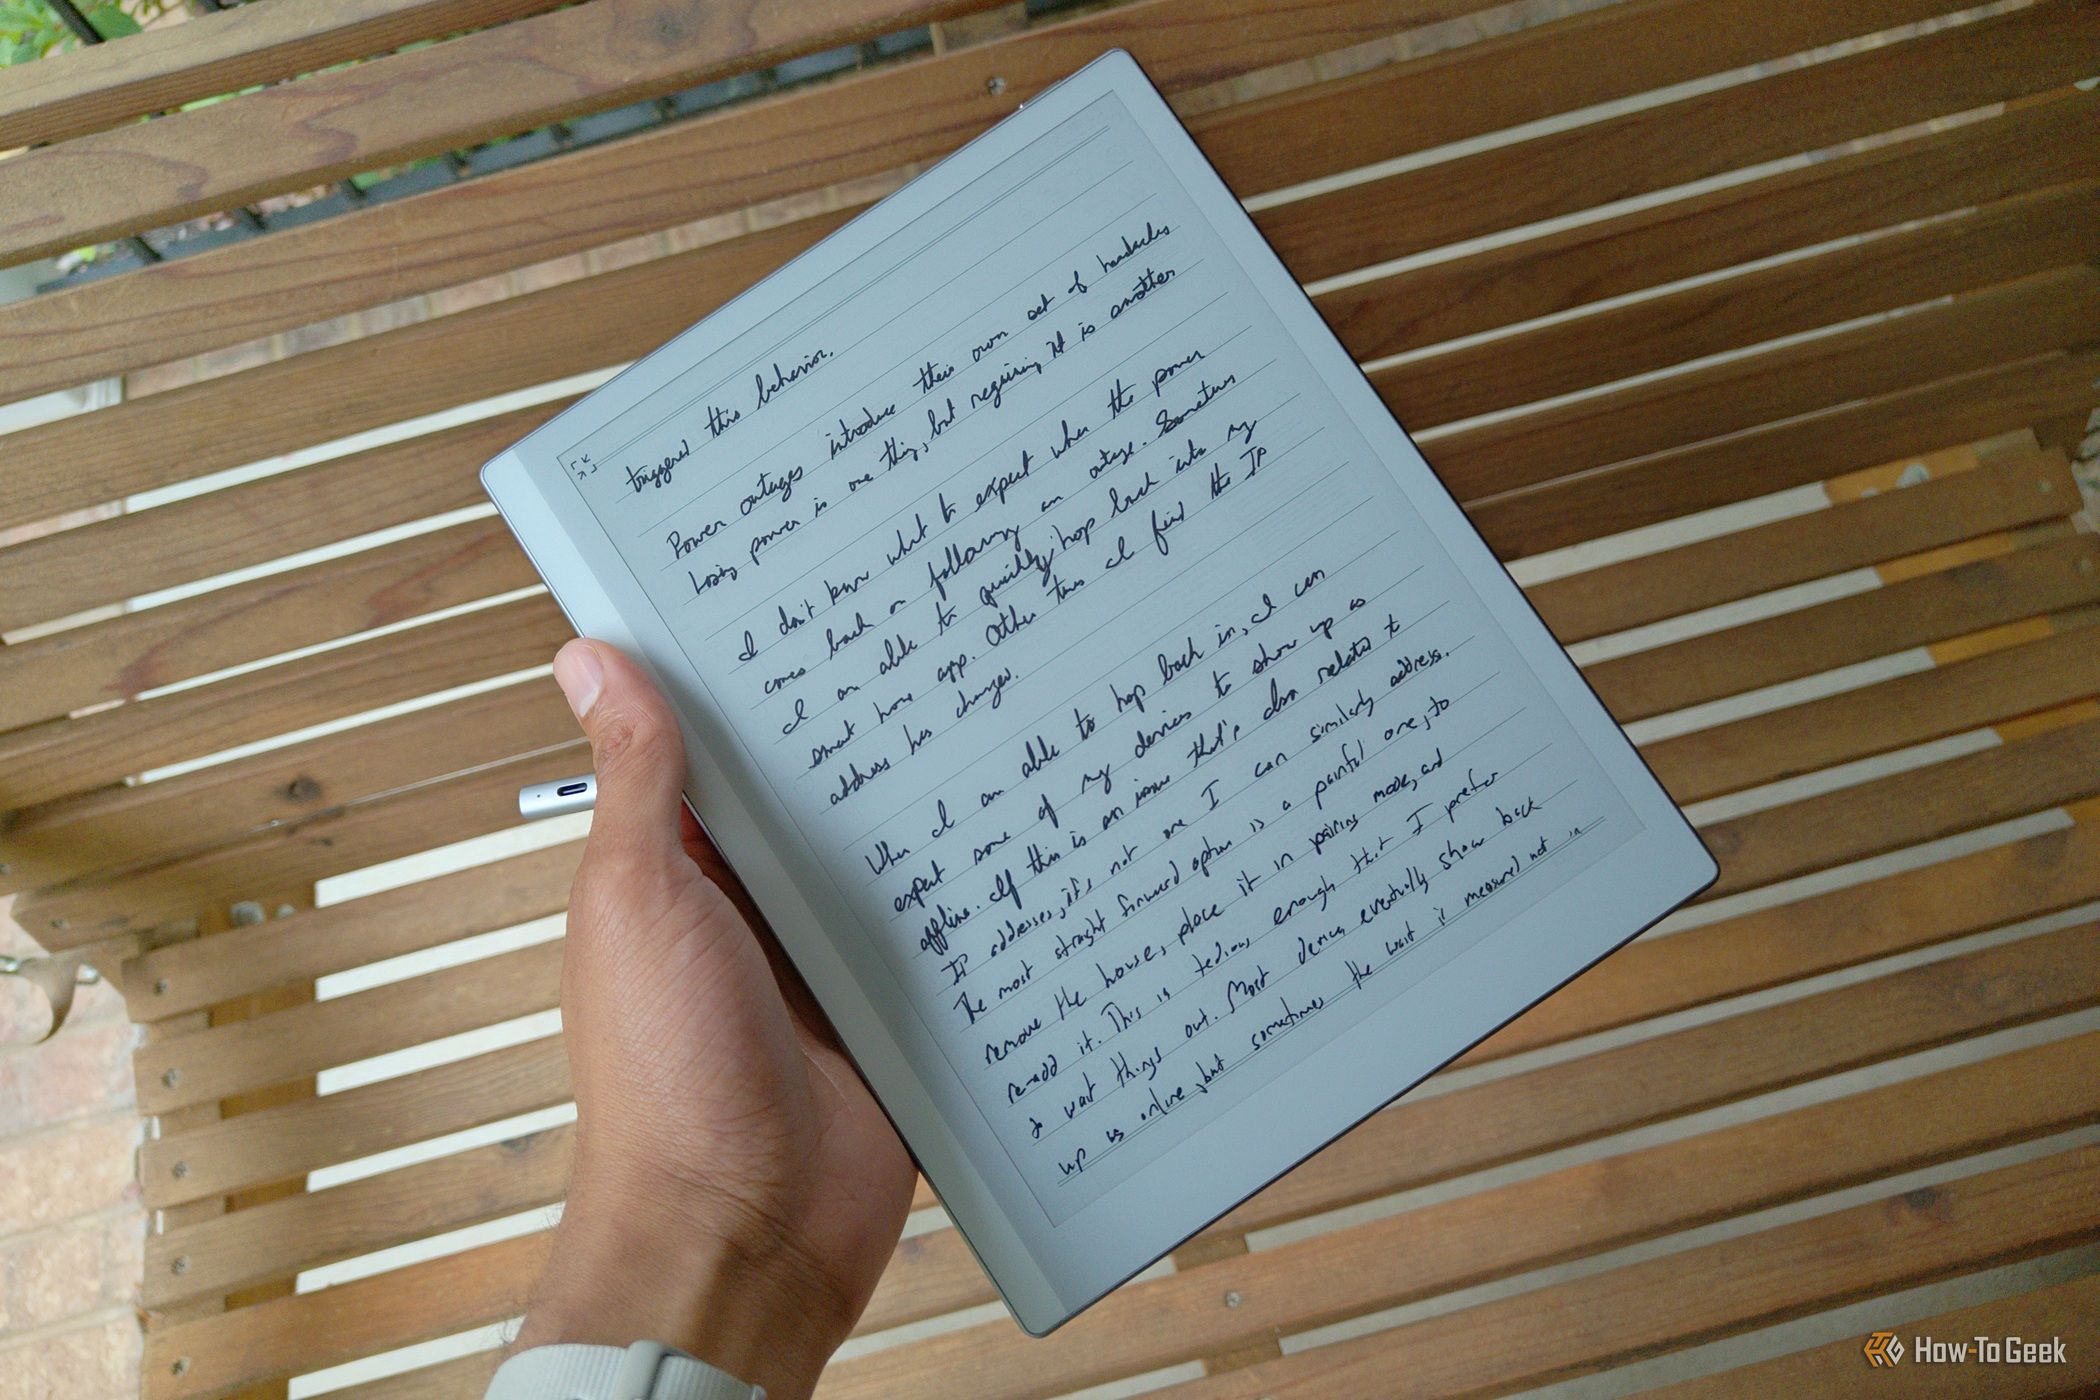 triggered this behavior.
Power outages introduce their own set of headaches
Losing power is one thing, but regaining it is another
I don't know what to expect when the power
comes back on following an outage. Sometimes
I am able to quickly hop back into my
smart home app. Other times I find the IP
address has changed.
When I am able to hop back in, I can
expect some of my devices to show up as
offline. If this is an issue that's also related to
IP addresses, it's not one I can similarly address.
The most straight forward option is a painful one, to
remove the houses, place it in pairing mode, and
re-add it. This is tedious enough that I prefer
to wait things out. Most devices eventually show back
up as online, but sometimes the wait is measured not in
How-To Geek